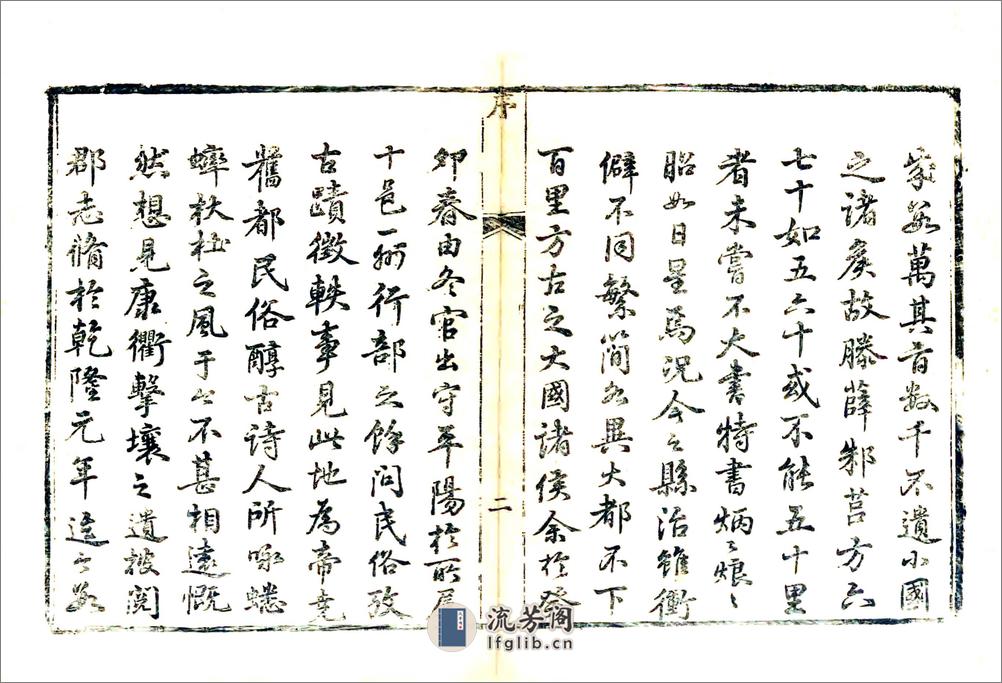 家為萬其旨数千不遺小國
之諸矦故滕薛邾莒方六
七十如五六十或不能五十里
者未嘗不大書特書炳〻烺〻
昭如日星焉況今之縣治雖衝
僻不同繁簡各異大都不下
百里方古之大國諸侯余於癸
序
二
卯春由冬官出守平陽於所属
十邑一州行部之餘問民俗攷
古蹟徵軼事見此地為帝堯
舊都民俗醇古詩人所咏蟋
蟀杕杜之風于今不甚相遠慨
然想見康衢擊壤之遺披閱
郡志脩於乾隆元年迄今
流芳阁
lfglib.cn